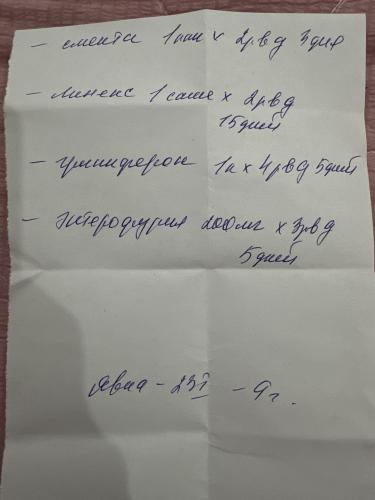 - смекта 1 пак х 2 р в д 3 дня
- Линекс 1 саше х 2 р в д
15 дней
- гриппферон 1 к х 4 р в д 5 дней
- Энтерофурил 200 мг х 3 р в д
5 дней
Явка - 23 I - 9 г.